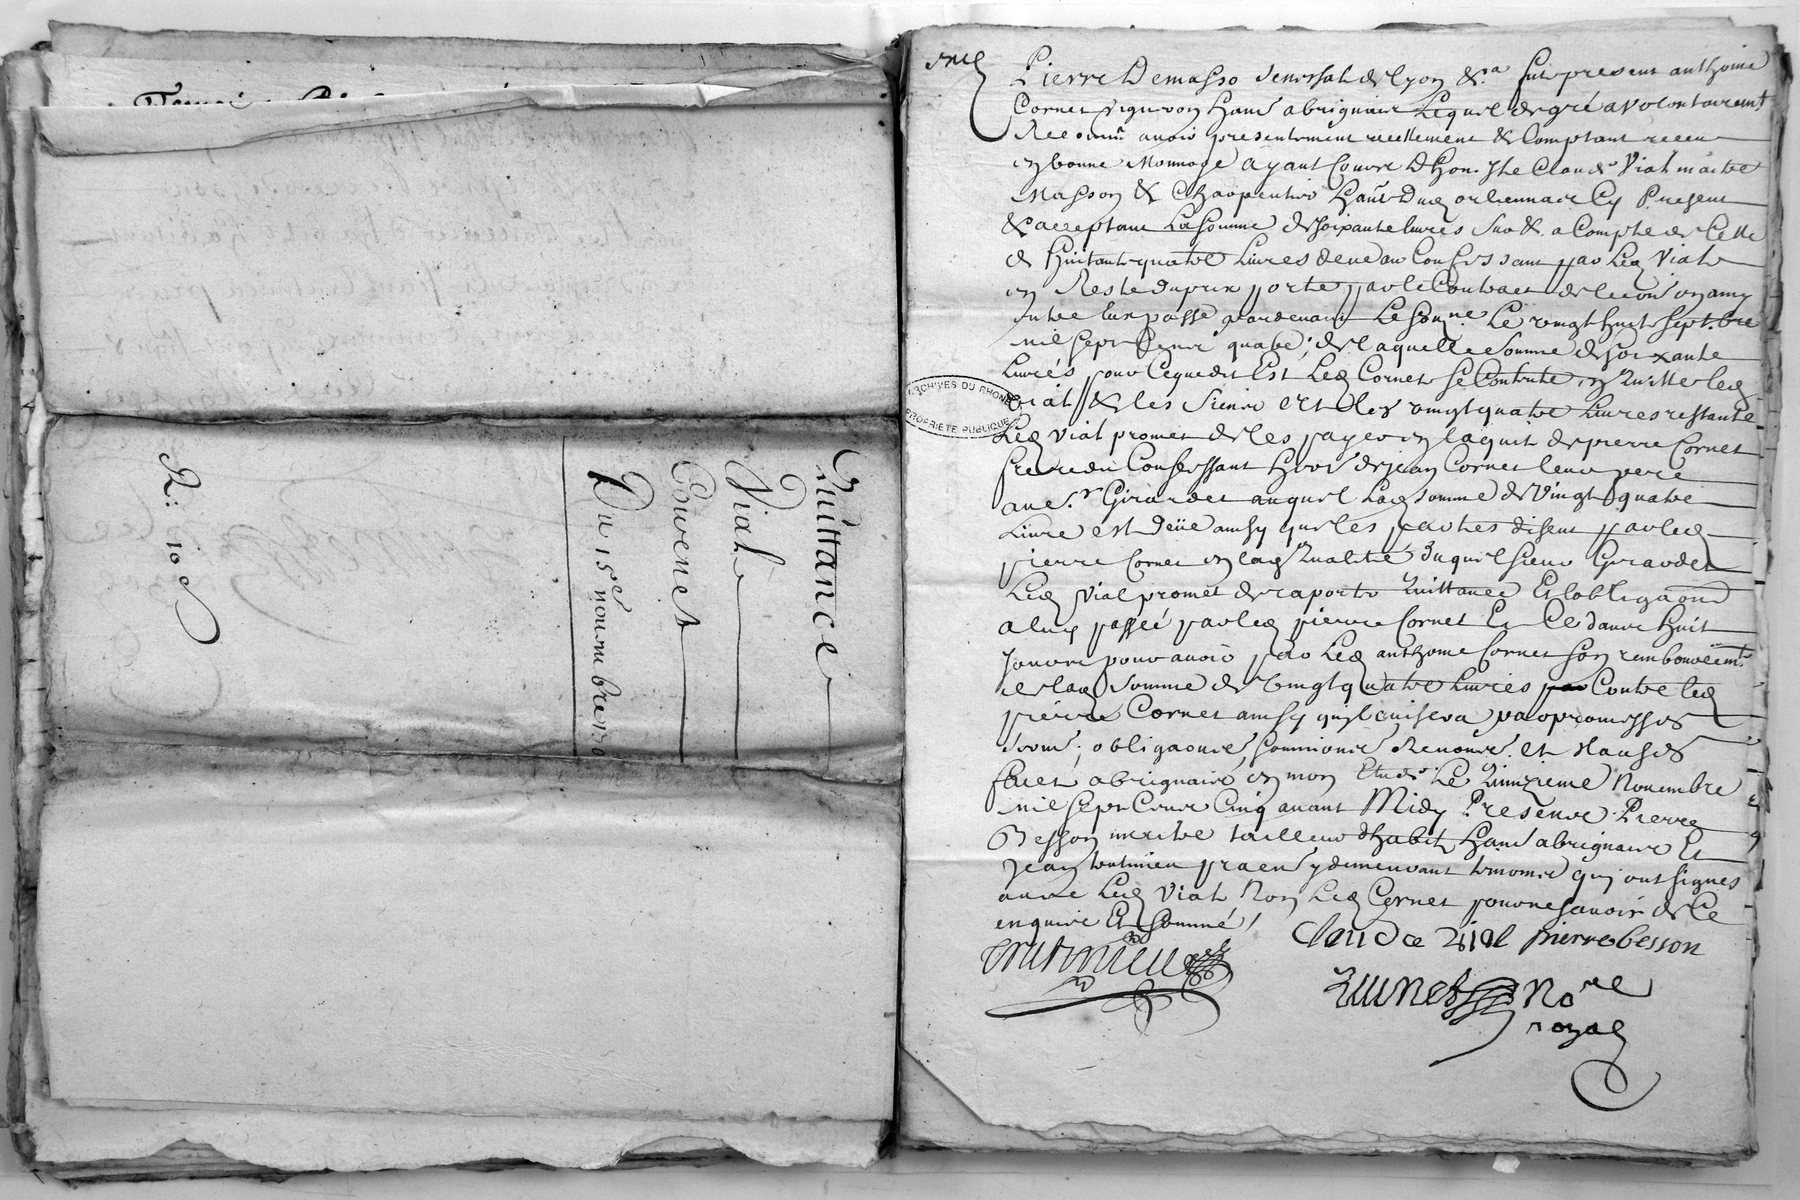 Quittance
Vial
Cornet
Du 15e novembre 170
R: 10
Pierre Demasso seneschal de lyon &a fut present anthoine
Cornet vigneron hant a brignais Lequel de gré a volontairemt
Reconnu avoir presentement reellement & Comptant receu
en bonne Monnoye ayant Cours D'hon. hte Claude Vial maitre
Masson & Charpentier hant Dud orliennair Cy Present
& acceptant La somme de soixante livres sur & a Compte de Celle
de huitante quatre Livres deue au Confessant par Led Vial
en Reste du prix porté par le Contract de
entre eux passé pardevant Le sousne Le vingt huit septbre
mil sept Cent quatre, de laquelle somme de soixante
Livres pour Ce que dit Est Led Cornet se Contente en Quitte led
vial & les siens et les vingt quatre Livres restante
Led vial promet de les payer en laquit de pierre Cornet
frere du Confessant de jean Cornet leur pere
au Sr Girardet auquel Lad somme de vingt quatre
Livre est deüe ainsy que les parties disent par led
pierre Cornet en lad Qualité duquel sieur Girardet
Led Vial promet de raporter Quittance Et lobligaond
a luy passée par led pierre Cornet Et Ce dans huit
Jours pour avoir par Led anthoine Cornet son remboursemt
de lad somme de vingt quatre Livres par Contre led
pierre Cornet ainsy quil avisera par promesses
serm, obligaons, soumions Renons et Clauses
fait a brignais en mon Etude Le Quinzieme Novembre
mil sept Cent Cinq avant Midy Presence Pierre
Besson maitre tailleur d'habits hant a brignais Et
Jean y demeurant temoins qui ont signés
avec Led Vial Non Led Cornet pour ne savoir de Ce
enquis Et sommé,
Claude vial pierre besson
Nore
royal
ARCHIVES DU RHONE
PROPRIÉTÉ PUBLIQUE